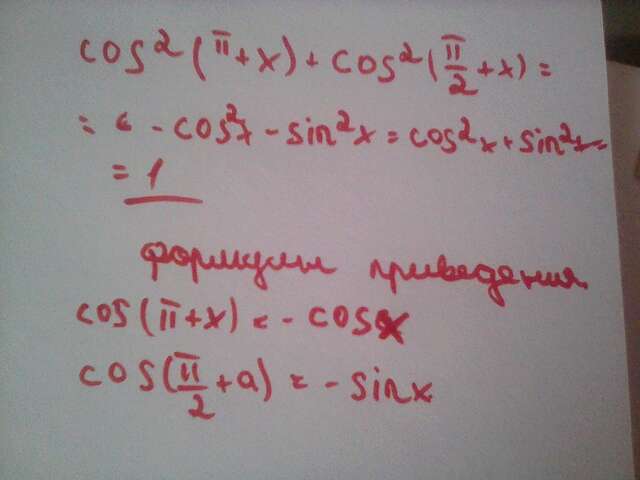 cos²(π+x)+cos²(π/2+x)=
= -cos²x-sin²x=cos²x+sin²x=
=1
формулы приведения
cos(π+x)=-cosx
cos(π/2+a)=-sinx